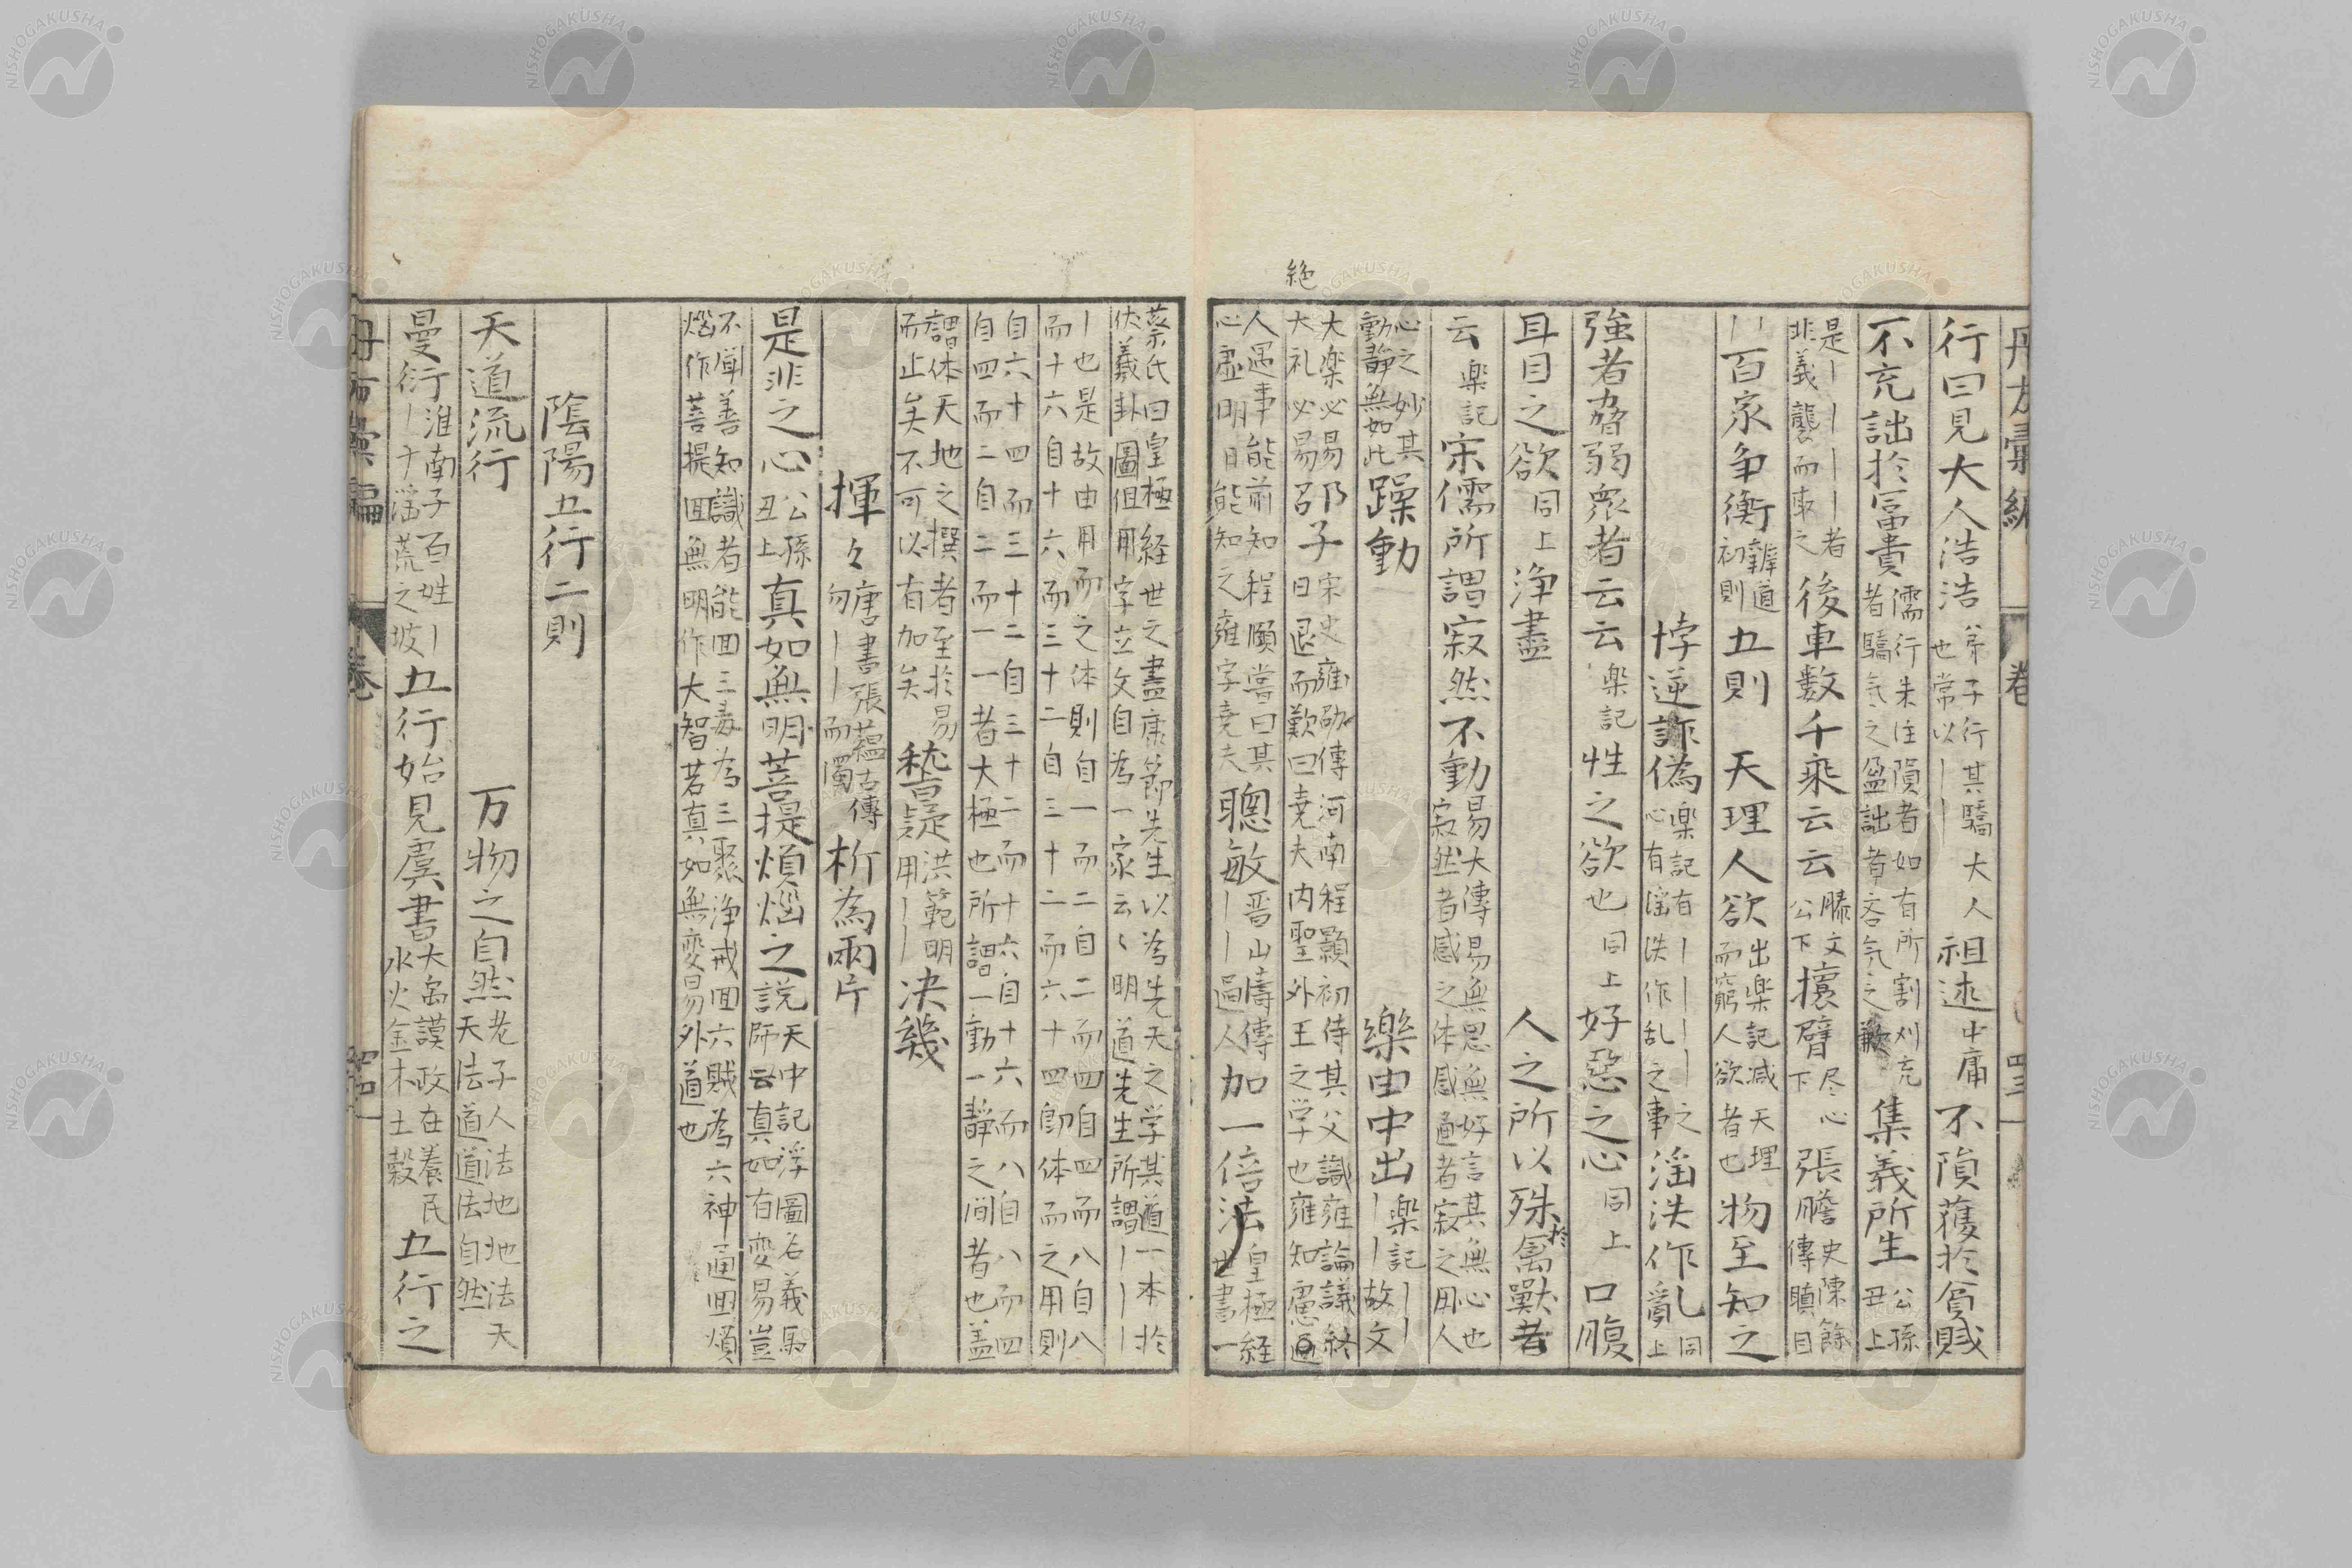 丹方彙編 卷 四三
行曰見大人浩浩 弟子行其驕大人也常以〡〡 祖述 中庸 不隕穫於貧賤
不充詘於冨貴 儒行朱注隕者如有所割刈充者驕氣之盈詘者吝氣之歉 集義所生 公孫丑上
是〡〡〡〡者非義襲而取之 後車數千乘云云 滕文公下 攘臂 尽心下 張膽 史陳餘傳瞋目
〡〡 百家争衡 辨道初 五則 天理人欲 出楽記滅天理而窮人欲者也 物至知之
悖逆詐偽 楽記有〡〡〡〡之心有淫泆作乱之事 淫泆作亂 同上
強者脅弱衆者云云 楽記 性之欲也 同上 好惡之心 同上 口腹
耳目之欲 同上 浄盡 人之所以殊於禽獸者
云 楽記 宋儒所謂寂然不動 易大傳易無思無好言其無心也寂然者感之体感通者寂之用人
心之妙其動静無如此 躁動 樂由中出 楽記〡〡〡〡故文
絶
大楽必易大礼必易 邵子 宋史雍劭傳河南程顥初侍其父識雍論議終日退而歎曰堯夫内聖外王之学也雍知慮過
人遇事能前知程頤嘗曰其心虚明自能知之雍字堯夫 聰敏 晋山濤傳〡〡過人 加一倍法 皇極経世書一
蔡氏曰皇極経世之盡康節先生以為先天之学其道一本於伏羲卦圖但用字立文自為一家云々明道先生所謂〡〡〡
〡也是故由用而之体則自一而二自二而四自四而八自八而十六自十六而三十二自三十二而六十四即体而之用則
自六十四而三十二自三十二而十六自十六而八自八而四自四而二自二而一一者大極也所謂一動一静之间者也盖
謂体天地之撰者至於易而止矣不可以有加矣 稽疑 洪範明用〡〡 决幾
揮々 唐書張蘊古傳勿〡〡而濁 析為兩片
是非之心 公孫丑上 真如無明菩提煩惱之説 天中記浮圖名義馬師云真如有変易豈
不闻善知識者能囬三毒為三聚浄戒囬六賊為六神通囬煩惱作菩提囬無明作大智若真如無変易外道也
陰陽五行二則
天道流行 万物之自然 老子人法地地法天天法道道法自然
曼衍 淮南子百姓〡〡于淫荒之坡 五行始見虞書 大禹謨政在養民水火金木土穀 五行之
丹方彙編 卷